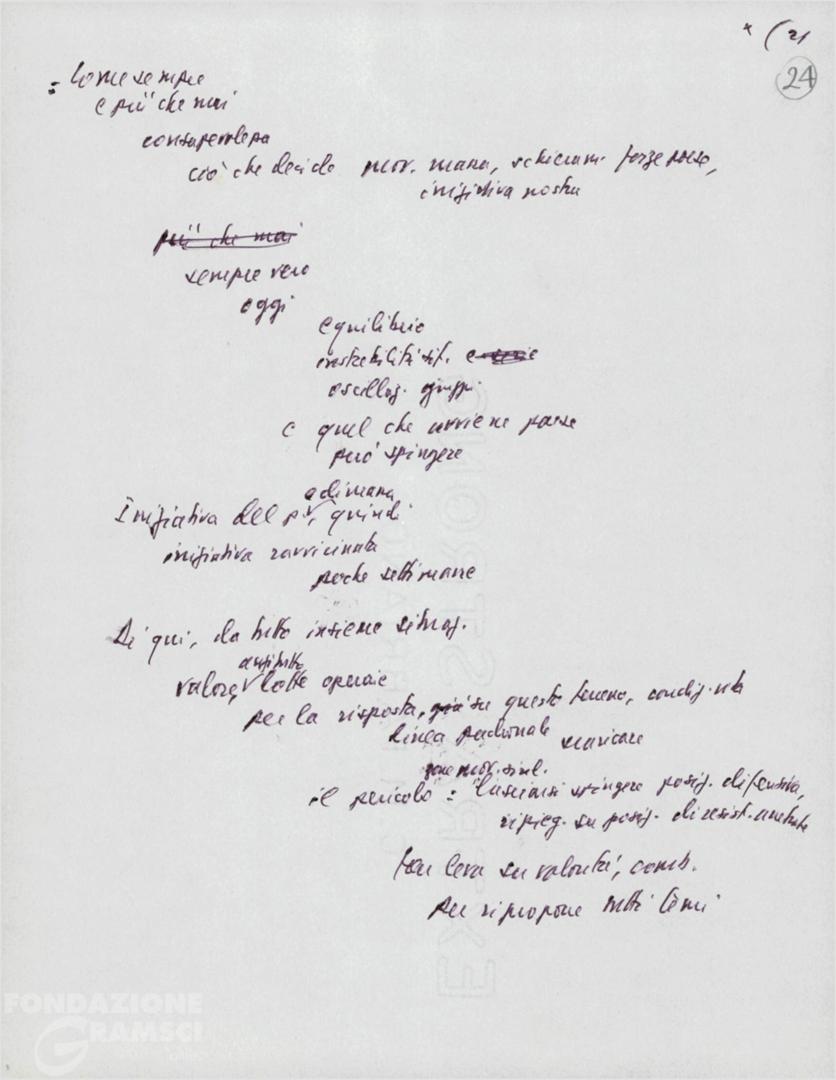 * (21
24
= Come sempre
e più che mai
consapevolezza
ciò che decide mov. massa, schieram. forze paese,
iniziativa nostra
più che mai
sempre vero
oggi
equilibrio
instabilità sit.
oscillaz. gruppi
e quel che avviene paese
può spingere
di massa
Iniziativa del p., quindi
iniziativa ravvicinata
poche settimane
Di qui, da tutto insieme situaz.
anzitutto
valore, lotte operaie
per la risposta, su questo terreno, condiz. vita
linea padronale scaricare
mov. sind.
il pericolo = lasciarsi spingere posiz. difensiva,
ripieg. su posiz. di resist.
far leva su volontà, comb.
per riproporre tutti temi
FONDAZIONE
GRAMSCI